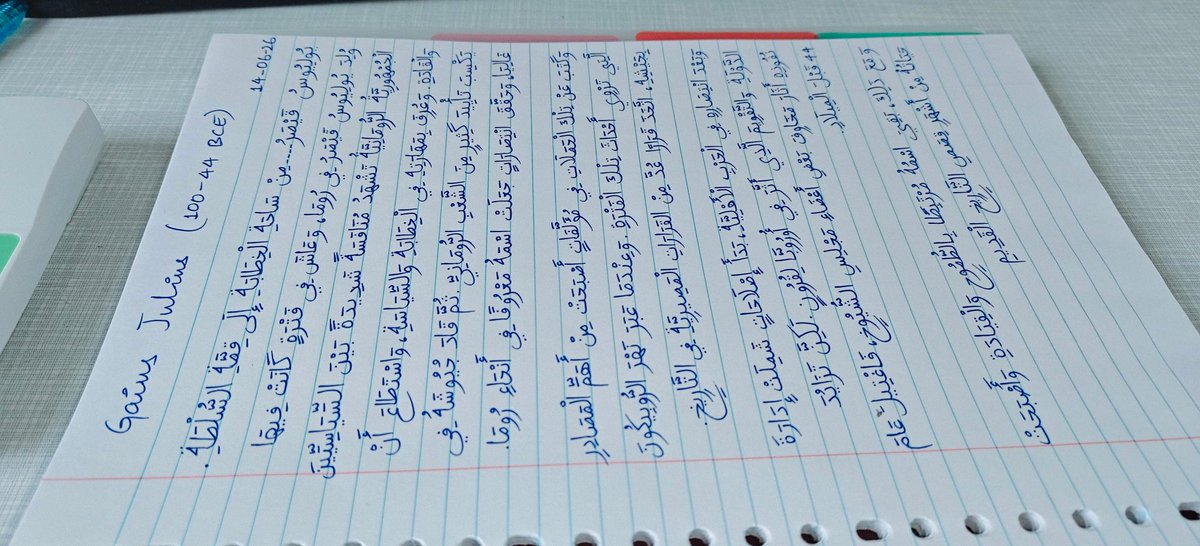 Gaius Julius (100-44 BCE)
14-06-26
يُولِيُوسُ قَيْصَرُ.... مِنْ سَاحَةِ الْخِطَابَةِ إِلَى قِمَّةِ السُّلْطَةِ.
وُلِدَ يُولِيُوسُ قَيْصَرُ فِي رُومَا، وَعَاشَ فِي فَتْرَةٍ كَانَتْ فِيهَا
الْجُمْهُورِيَّةُ الرُّومَانِيَّةُ تَشْهَدُ مُنَافَسَةً شَدِيدَةً بَيْنَ السِّيَاسِيِّينَ
وَالْقَادَةِ. وَعُرِفَ بِمَهَارَتِهِ فِي الْخِطَابَةِ وَالسِّيَاسَةِ، وَاسْتَطَاعَ أَنْ
يَكْسِبَ تَأْيِيدَ كَثِيرٍ مِنَ الشَّعْبِ الرُّومَانِيِّ. ثُمَّ قَادَ جُيُوشَهُ فِي
غَالِيَا، وَحَقَّقَ انْتِصَارَاتٍ جَعَلَتْ اسْمَهُ مَعْرُوفًا فِي أَنْحَاءِ رُومَا.
وَكَتَبَ عَنْ تِلْكَ الْحَمَلَاتِ فِي مُؤَلَّفَاتٍ أَصْبَحَتْ مِنْ أَهَمِّ الْمَصَادِرِ
الَّتِي تَرْوِي أَحْدَاثَ تِلْكَ الْفَتْرَةِ. وَعِنْدَمَا عَبَرَ نَهْرَ الرُّوبِيكُونَ
بِجَيْشِهِ، اتَّخَذَ قَرَارًا عُدَّ مِنَ الْقَرَارَاتِ الْمَصِيرِيَّةِ فِي التَّارِيخِ.
وَبَعْدَ انْتِصَارِهِ فِي الْحَرْبِ الْأَهْلِيَّةِ، بَدَأَ إِصْلَاحَاتٍ شَمِلَتْ إِدَارَةَ
الدَّوْلَةِ وَالتَّقْوِيمَ الَّذِي أَثَّرَ فِي أُورُوبَّا لِقُرُونٍ. لَكِنَّ تَزَايُدَ
نُفُوذِهِ أَثَارَ مَخَاوِفَ بَعْضِ أَعْضَاءِ مَجْلِسِ الشُّيُوخِ، فَاغْتِيلَ عَامَ
44 قَبْلَ الْمِيلَادِ.
وَمَعَ ذَلِكَ، بَقِيَ اسْمُهُ مُرْتَبِطًا بِالطُّمُوحِ وَالْقِيَادَةِ وَأَصْبَحَتْ
حَيَاتُهُ مِنْ أَشْهَرِ قِصَصِ التَّارِيخِ الْقَدِيمِ